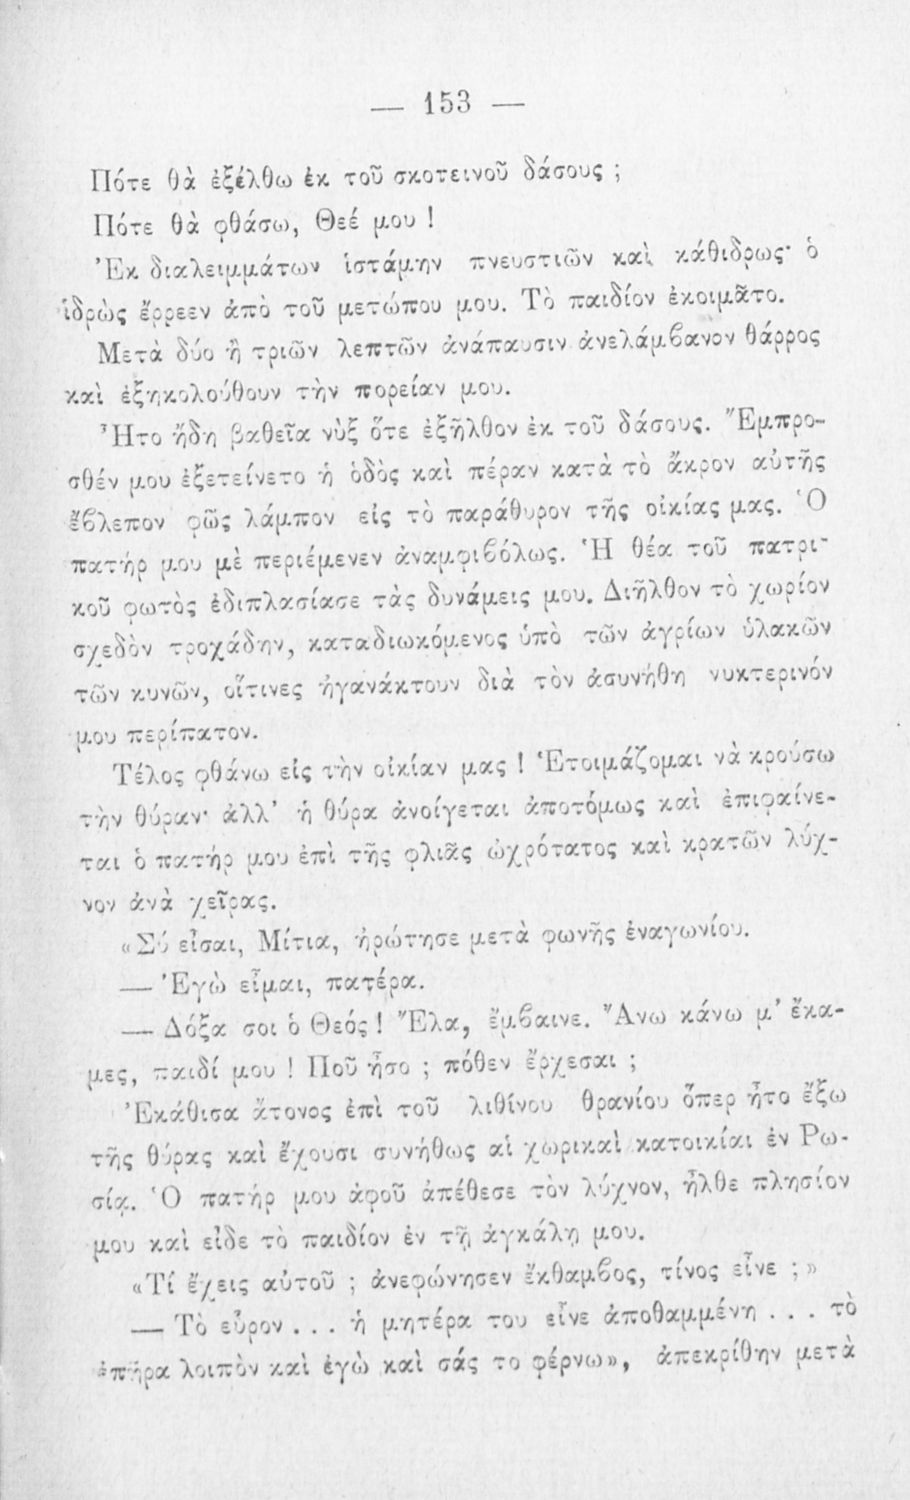 — 153 —
Πότε θὰ ἐξέλθω ἐκ τοῦ σκοτεινοῦ δάσους ;
Πότε θὰ φθάσω, Θεέ μου !
Ἐκ διαλειμμάτων ἱστάμην πνευστιῶν καὶ κάθιδρως· ὁ
ἱδρὼς ἔρρεεν ἀπὸ τοῦ μετώπου μου. Τὸ παιδίον ἐκοιμᾶτο.
Μετὰ δύο ἢ τριῶν λεπτῶν ἀνάπαυσιν ἀνελάμβανον θάρρος
καὶ ἐξηκολούθουν τὴν πορείαν μου.
Ἦτο ἤδη βαθεῖα νὺξ ὅτε ἐξῆλθον ἐκ τοῦ δάσους. Ἔμπρο-
σθέν μου ἐξετείνετο ἡ ὁδὸς καὶ πέραν κατὰ τὸ ἄκρον αὐτῆς
ἔβλεπον φῶς λάμπον εἰς τὸ παράθυρον τῆς οἰκίας μας. Ὁ
πατήρ μου μὲ περιέμενεν ἀναμφιβόλως. Ἡ θέα τοῦ πατρι-
κοῦ φωτὸς ἐδιπλασίασε τὰς δυνάμεις μου. Διῆλθον τὸ χωρίον
σχεδὸν τροχάδην, καταδιωκόμενος ὑπὸ τῶν ἀγρίων ὑλακῶν
τῶν κυνῶν, οἵτινες ἠγανάκτουν διὰ τὸν ἀσυνήθη νυκτερινόν
μου περίπατον.
Τέλος φθάνω εἰς τὴν οἰκίαν μας ! Ἑτοιμάζομαι νὰ κρούσω
τὴν θύραν· ἀλλ' ἡ θύρα ἀνοίγεται ἀποτόμως καὶ ἐπιφαίνε-
ται ὁ πατήρ μου ἐπὶ τῆς φλιᾶς ὠχρότατος καὶ κρατῶν λύχ-
νον ἀνὰ χεῖρας.
«Σύ εἶσαι, Μίτια, ἠρώτησε μετὰ φωνῆς ἐναγωνίου.
— Ἐγὼ εἶμαι, πατέρα.
— Δόξα σοι ὁ Θεός ! Ἔλα, ἔμβαινε. Ἄνω κάνω μ' ἔκα-
μες, παιδί μου ! Ποῦ ἦσο ; πόθεν ἔρχεσαι ;
Ἐκάθισα ἄτονος ἐπὶ τοῦ λιθίνου θρανίου ὅπερ ἦτο ἔξω
τῆς θύρας καὶ ἔχουσι συνήθως αἱ χωρικαὶ κατοικίαι ἐν Ρω-
σίᾳ. Ὁ πατήρ μου ἀφοῦ ἀπέθεσε τὸν λύχνον, ἦλθε πλησίον
μου καὶ εἶδε τὸ παιδίον ἐν τῇ ἀγκάλῃ μου.
«Τί ἔχεις αὐτοῦ ; ἀνεφώνησεν ἔκθαμβος, τίνος εἶνε ; »
— Τὸ εὗρον . . . ἡ μητέρα του εἶνε ἀποθαμμένη . . . τὸ
ἐπῆρα λοιπὸν καὶ ἐγὼ καὶ σάς το φέρνω», ἀπεκρίθην μετὰ